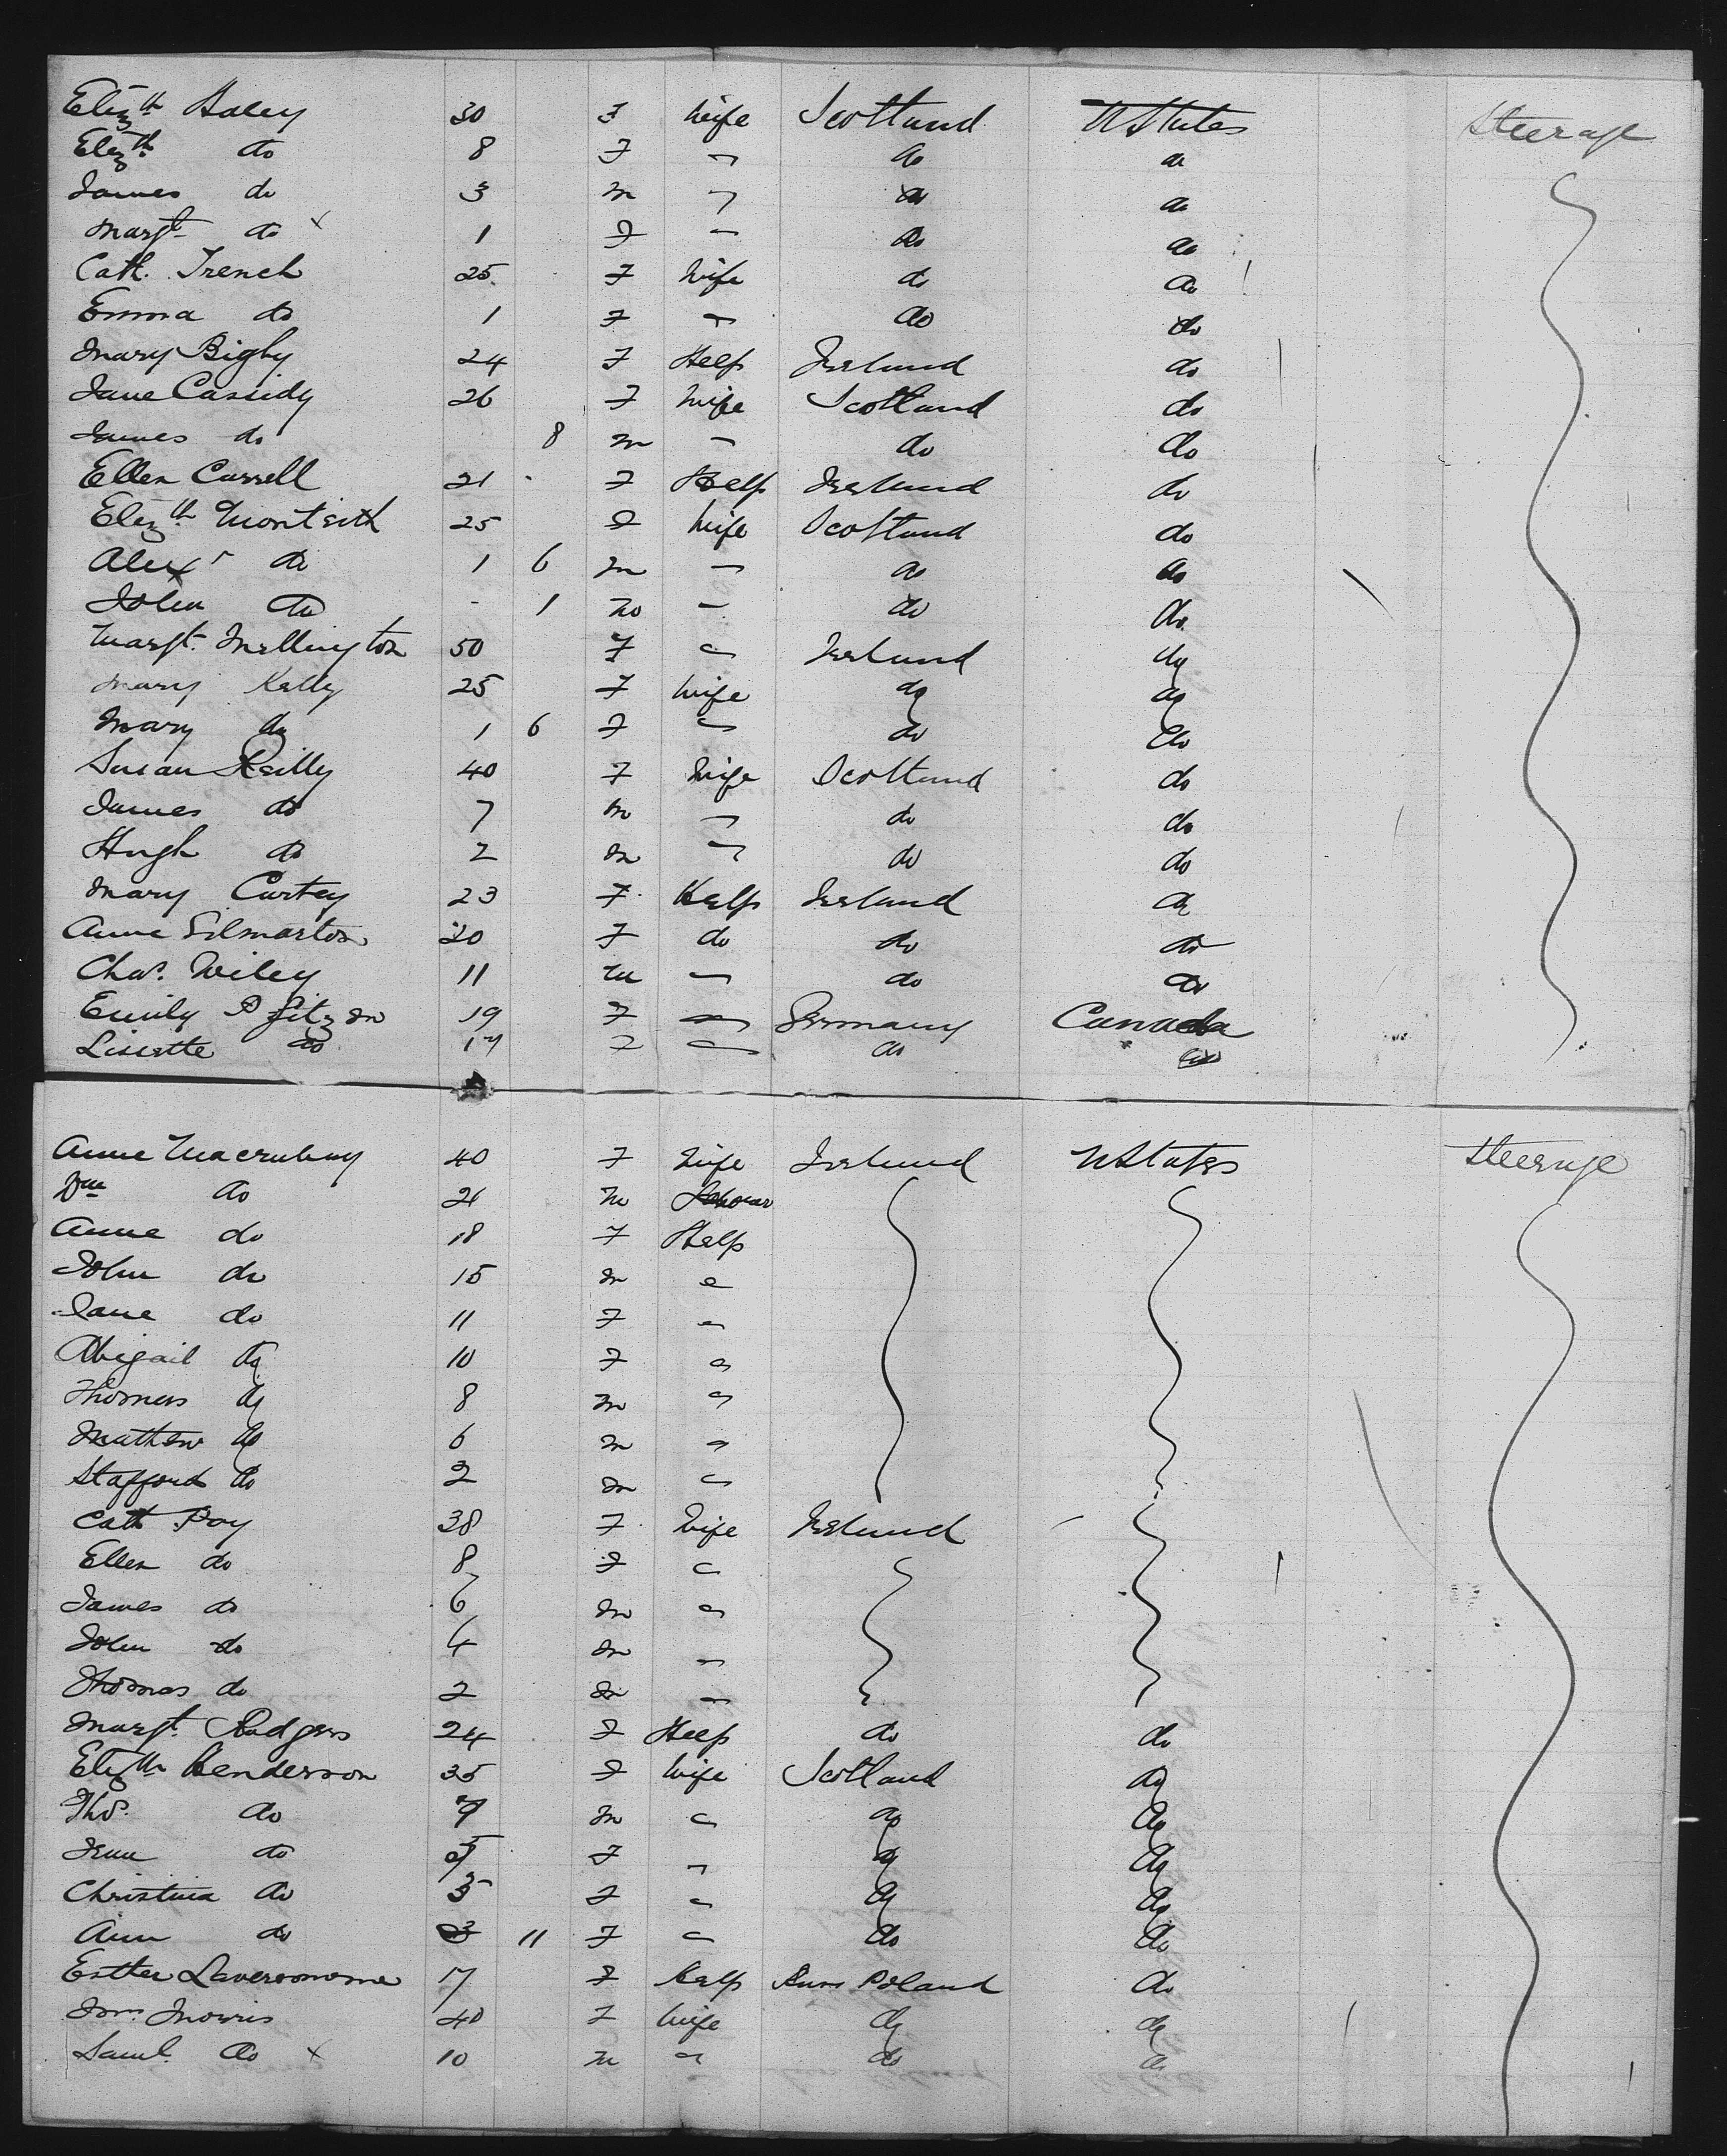 Elizth Haley 30 F Wife Scotland UStates Steerage
Elizth do 8 F " do do
James do 3 m " do do
Margt do x 1 F " do do
Cath. Trench 25 F Wife do do
Emma do 1 F " do do
Mary Bigby 24 F Help Ireland do
Jane Cassidy 26 F Wife Scotland do
James do 8 m " do do
Ellen Carrell 21 F Help Ireland do
Elizth Monteith 25 F Wife Scotland do
Alexr do 1 6 m " do do
John do - 1 m " do do
Margt. Mellington 50 F " Ireland do
Mary Kelly 25 F Wife do do
Mary do 1 6 F " do do
Susan Reilly 40 F Wife Scotland do
James do 7 m " do do
Hugh do 2 m " do do
Mary Curtey 23 F Help Ireland do
Anne Gilmartin 20 F do do do
Chas. Wiley 11 m " do do
Emily 19 F " Germany Canada
Lisette do 17 F " do do
Anne 40 F Wife Ireland UStates Steerage
Wm do 21 m
Anne do 18 F Help
John do 15 m "
Jane do 11 F "
Abigail do 10 F "
Thomas do 8 m "
Mathew do 6 m "
Stafford do 2 m "
Cath Roy 38 F Wife Ireland
Ellen do 8 F "
James do 6 m "
John do 4 m "
Thomas do 2 m "
Margt. Rodgers 24 F Help do do
Elizth Henderson 35 F Wife Scotland do
Thos. do 7 m " do do
Jean do 5 F " do do
Christina do 3 F " do do
Ann do 11 F " do do
Esther 17 F Help Russ Poland do
Morris 40 F Wife do do
Saml. do x 10 m " do do